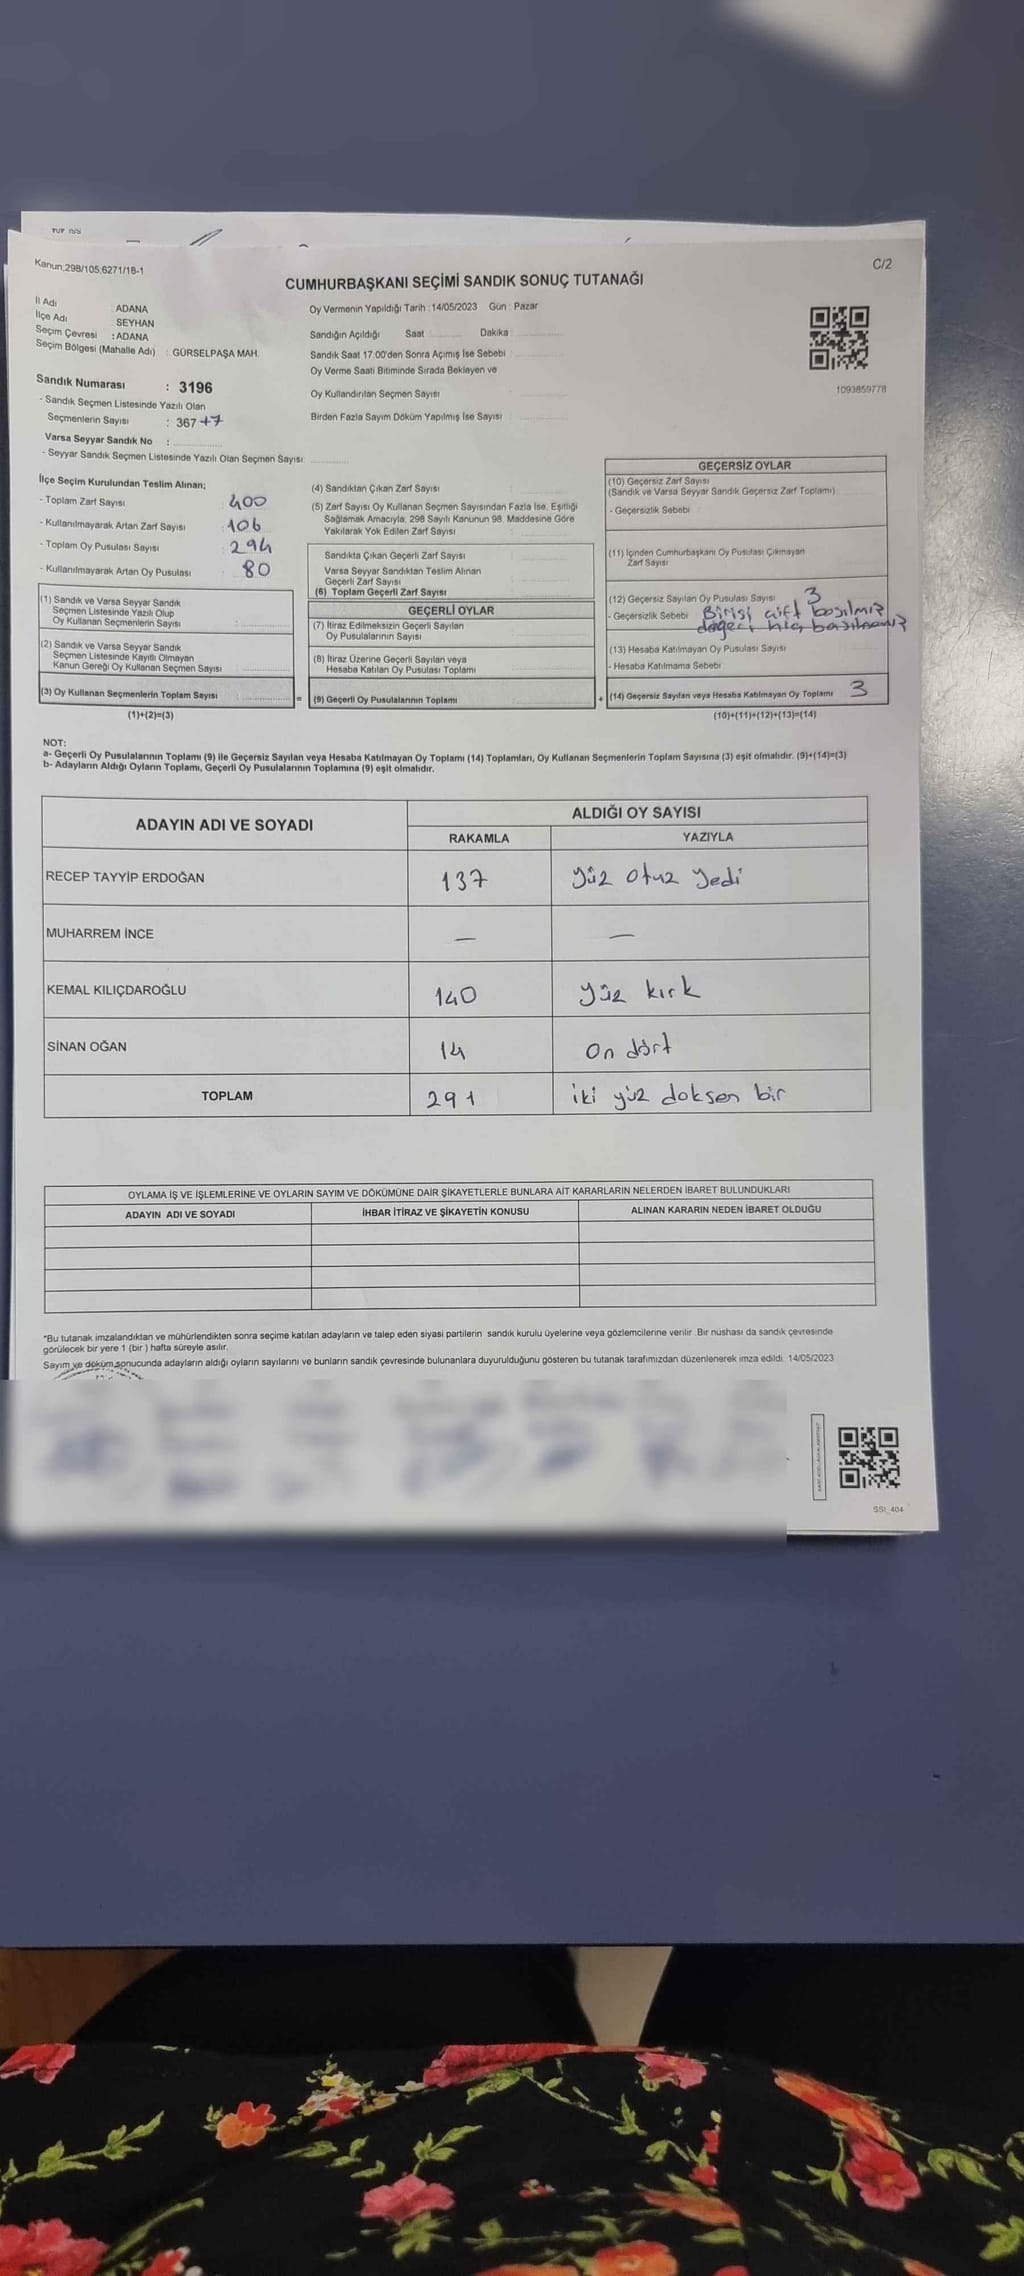 Kanun,298/105,6271/18-1
C/2
CUMHURBAŞKANI SEÇİMİ SANDIK SONUÇ TUTANAĞI
İl Adı : ADANA
İlçe Adı : SEYHAN
Seçim Çevresi : ADANA
Seçim Bölgesi (Mahalle Adı) : GÜRSELPAŞA MAH.
Sandık Numarası : 3196
- Sandık Seçmen Listesinde Yazılı Olan
Seçmenlerin Sayısı : 367 +7
Varsa Seyyar Sandık No :
- Seyyar Sandık Seçmen Listesinde Yazılı Olan Seçmen Sayısı:
Oy Vermenin Yapıldığı Tarih :14/05/2023 Gün : Pazar
Sandığın Açıldığı Saat Dakika :
Sandık Saat 17:00'den Sonra Açımış İse Sebebi :
Oy Verme Saati Bitiminde Sırada Bekleyen ve
Oy Kullandırılan Seçmen Sayısı
Birden Fazla Sayım Döküm Yapılmış İse Sayısı :
1093859778
İlçe Seçim Kurulundan Teslim Alınan;
- Toplam Zarf Sayısı 400
- Kullanılmayarak Artan Zarf Sayısı 106
- Toplam Oy Pusulası Sayısı 294
- Kullanılmayarak Artan Oy Pusulası 80
(1) Sandık ve Varsa Seyyar Sandık
Seçmen Listesinde Yazılı Olup
Oy Kullanan Seçmenlerin Sayısı :
(2) Sandık ve Varsa Seyyar Sandık
Seçmen Listesinde Kayıtlı Olmayan
Kanun Gereği Oy Kullanan Seçmen Sayısı :
(3) Oy Kullanan Seçmenlerin Toplam Sayısı :
(1)+(2)=(3)
=
(4) Sandıktan Çıkan Zarf Sayısı :
(5) Zarf Sayısı Oy Kullanan Seçmen Sayısından Fazla İse, Eşitliği
Sağlamak Amacıyla, 298 Sayılı Kanunun 98. Maddesine Göre
Yakılarak Yok Edilen Zarf Sayısı :
Sandıkta Çıkan Geçerli Zarf Sayısı :
Varsa Seyyar Sandıktan Teslim Alınan
Geçerli Zarf Sayısı :
(6) Toplam Geçerli Zarf Sayısı :
GEÇERLİ OYLAR
(7) İtiraz Edilmeksizin Geçerli Sayılan
Oy Pusulalarının Sayısı :
(8) İtiraz Üzerine Geçerli Sayılan veya
Hesaba Katılan Oy Pusulası Toplamı :
(9) Geçerli Oy Pusulalarının Toplamı :
+
GEÇERSİZ OYLAR
(10) Geçersiz Zarf Sayısı
(Sandık ve Varsa Seyyar Sandık Geçersiz Zarf Toplamı)
- Geçersizlik Sebebi
(11) İçinden Cumhurbaşkanı Oy Pusulası Çıkmayan
Zarf Sayısı
(12) Geçersiz Sayılan Oy Pusulası Sayısı 3
- Geçersizlik Sebebi Birisi çift basılmış
diğeri hiç basılmamış
(13) Hesaba Katılmayan Oy Pusulası Sayısı
- Hesaba Katılmama Sebebi
(14) Geçersiz Sayılan veya Hesaba Katılmayan Oy Toplamı 3
(10)+(11)+(12)+(13)=(14)
NOT:
a- Geçerli Oy Pusulalarının Toplamı (9) ile Geçersiz Sayılan veya Hesaba Katılmayan Oy Toplamı (14) Toplamları, Oy Kullanan Seçmenlerin Toplam Sayısına (3) eşit olmalıdır. (9)+(14)=(3)
b- Adayların Aldığı Oyların Toplamı, Geçerli Oy Pusulalarının Toplamına (9) eşit olmalıdır.
ADAYIN ADI VE SOYADI
ALDIĞI OY SAYISI
RAKAMLA YAZIYLA
RECEP TAYYİP ERDOĞAN 137 yüz otuz yedi
MUHARREM İNCE — —
KEMAL KILIÇDAROĞLU 140 yüz kırk
SİNAN OĞAN 14 on dört
TOPLAM 291 iki yüz doksen bir
OYLAMA İŞ VE İŞLEMLERİNE VE OYLARIN SAYIM VE DÖKÜMÜNE DAİR ŞİKAYETLERLE BUNLARA AİT KARARLARIN NELERDEN İBARET BULUNDUKLARI
ADAYIN ADI VE SOYADI İHBAR İTİRAZ VE ŞİKAYETİN KONUSU ALINAN KARARIN NEDEN İBARET OLDUĞU
*Bu tutanak imzalandıktan ve mühürlendikten sonra seçime katılan adayların ve talep eden siyasi partilerin sandık kurulu üyelerine veya gözlemcilerine verilir. Bir nüshası da sandık çevresinde
görülecek bir yere 1 (bir ) hafta süreyle asılır.
Sayım ve döküm sonucunda adayların aldığı oyların sayılarını ve bunların sandık çevresinde bulunanlara duyurulduğunu gösteren bu tutanak tarafımızdan düzenlenerek imza edildi. 14/05/2023
SSI_404